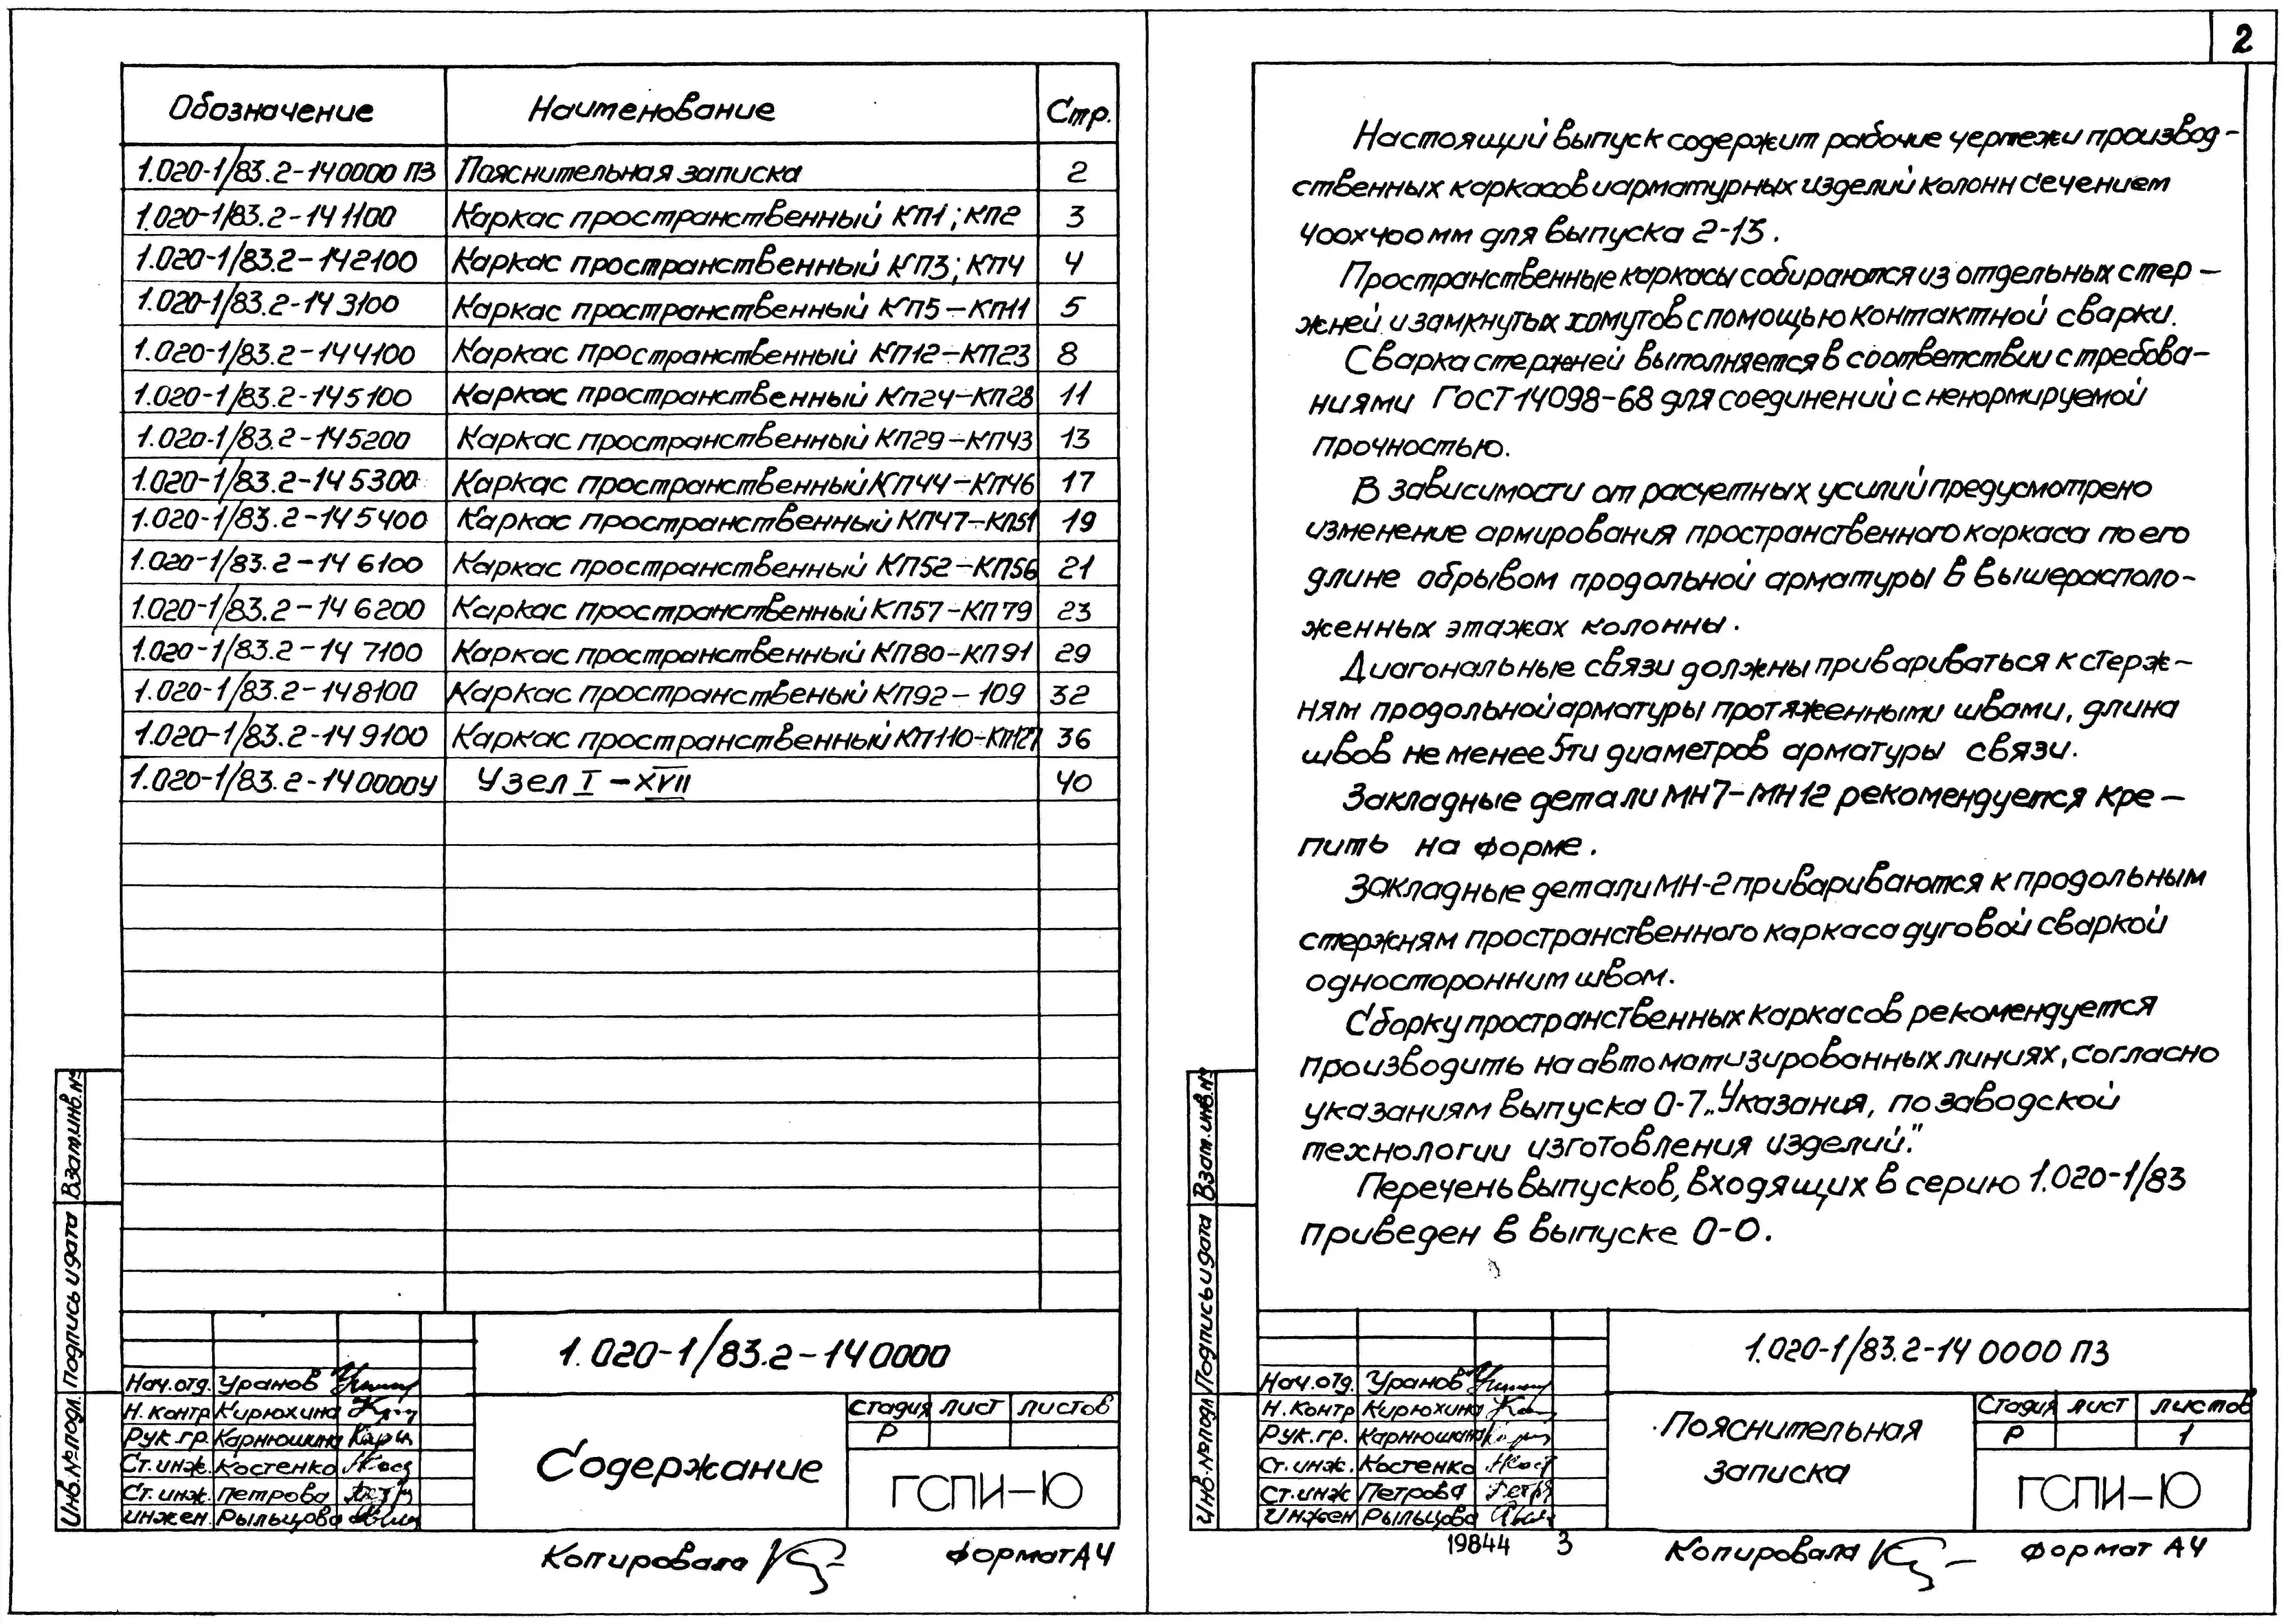 Обозначение Наименование Стр.
1.020-1/83.2-140000 ПЗ Пояснительная записка 2
1.020-1/83.2-141100 Каркас пространственный КП1; КП2 3
1.020-1/83.2-142100 Каркас пространственный КП3; КП4 4
1.020-1/83.2-143100 Каркас пространственный КП5-КП11 5
1.020-1/83.2-144100 Каркас пространственный КП12-КП23 8
1.020-1/83.2-145100 Каркас пространственный КП24-КП28 11
1.020-1/83.2-145200 Каркас пространственный КП29-КП43 13
1.020-1/83.2-145300 Каркас пространственный КП44-КП46 17
1.020-1/83.2-145400 Каркас пространственный КП47-КП51 19
1.020-1/83.2-146100 Каркас пространственный КП52-КП56 21
1.020-1/83.2-146200 Каркас пространственный КП57-КП79 23
1.020-1/83.2-147100 Каркас пространственный КП80-КП91 29
1.020-1/83.2-148100 Каркас пространственый КП92-109 32
1.020-1/83.2-149100 Каркас пространственный КП110-КП127 36
1.020-1/83.2-140000У Узел I - XVII 40
Взам.инв.№
Подпись и дата
Инв.№подл.
1.020-1/83.2-140000
Нач.отд. Уранов
Н.контр Кирюхина
Рук.гр. Карнюшина
Ст.инж. Костенко
Ст.инж. Петрова
инжен. Рыльцова
Содержание
стадия лист листов
Р
ГСПИ-Ю
Копировала
формат А4
2
Настоящий выпуск содержит рабочие чертежи производ-
ственных каркасов и арматурных изделий колонн сечением
400х400 мм для выпуска 2-13.
Пространственные каркасы собираются из отдельных стер-
жней и замкнутых хомутов с помощью контактной сварки.
Сварка стержней выполняется в соответствии с требова-
ниями ГОСТ 14098-68 для соединений с ненормируемой
прочностью.
В зависимости от расчетных усилий предусмотрено
изменение армирования пространственного каркаса по его
длине обрывом продольной арматуры в вышерасполо-
женных этажах колонны.
Диагональные связи должны привариваться к стерж-
ням продольной арматуры протяженными швами, длина
швов не менее 5ти диаметров арматуры связи.
Закладные детали МН7-МН12 рекомендуется кре-
пить на форме.
Закладные детали МН-2 привариваются к продольным
стержням пространственного каркаса дуговой сваркой
односторонним швом.
Сборку пространственных каркасов рекомендуется
производить на автоматизированных линиях, согласно
указаниям выпуска 0-7 „Указания, по заводской
технологии изготовления изделий."
Перечень выпусков, входящих в серию 1.020-1/83
приведен в выпуске 0-0.
Взам.инв.№
Подпись и дата
Инв.№подл
1.020-1/83.2-14 0000 ПЗ
Нач.отд. Уранов
Н.контр Кирюхина
Рук.гр. Карнюшина
Ст.инж. Костенко
Ст.инж Петрова
Инжен Рыльцова
Пояснительная
записка
Стадия лист листов
Р 1
ГСПИ-Ю
19844 3
Копировала
формат А4